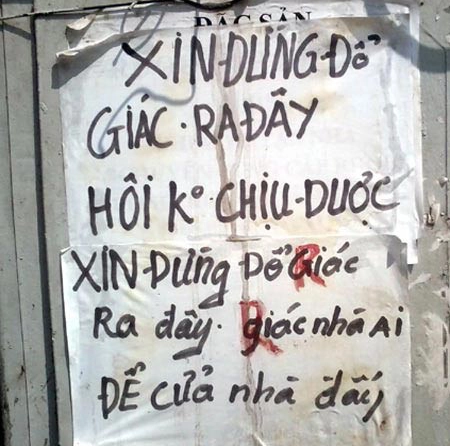 ĐẶC SẢN
XIN ĐỪNG ĐỔ
GIÁC. RA ĐÂY
HÔI K° CHỊU ĐƯỢC
XIN ĐỪNG ĐỔ Giác
Ra đây. giác nhà Ai
ĐỂ CỬA nhà đấy